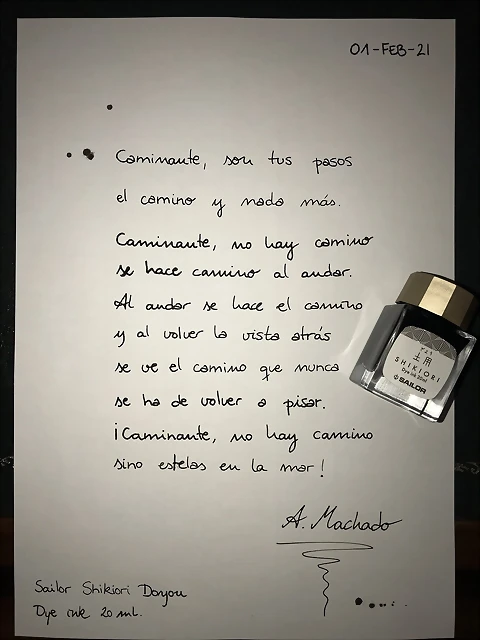 01-FEB-21
Caminante, son tus pasos
el camino y nada más.
Caminante, no hay camino
se hace camino al andar.
Al andar se hace el camino
y al volver la vista atrás
se ve el camino que nunca
se ha de volver a pisar.
¡Caminante, no hay camino
sino estelas en la mar!
A. Machado
どよう
土用
SHIKIORI
Dye ink 20ml
SAILOR
Sailor Shikiori Doyou
Dye ink 20 ml.